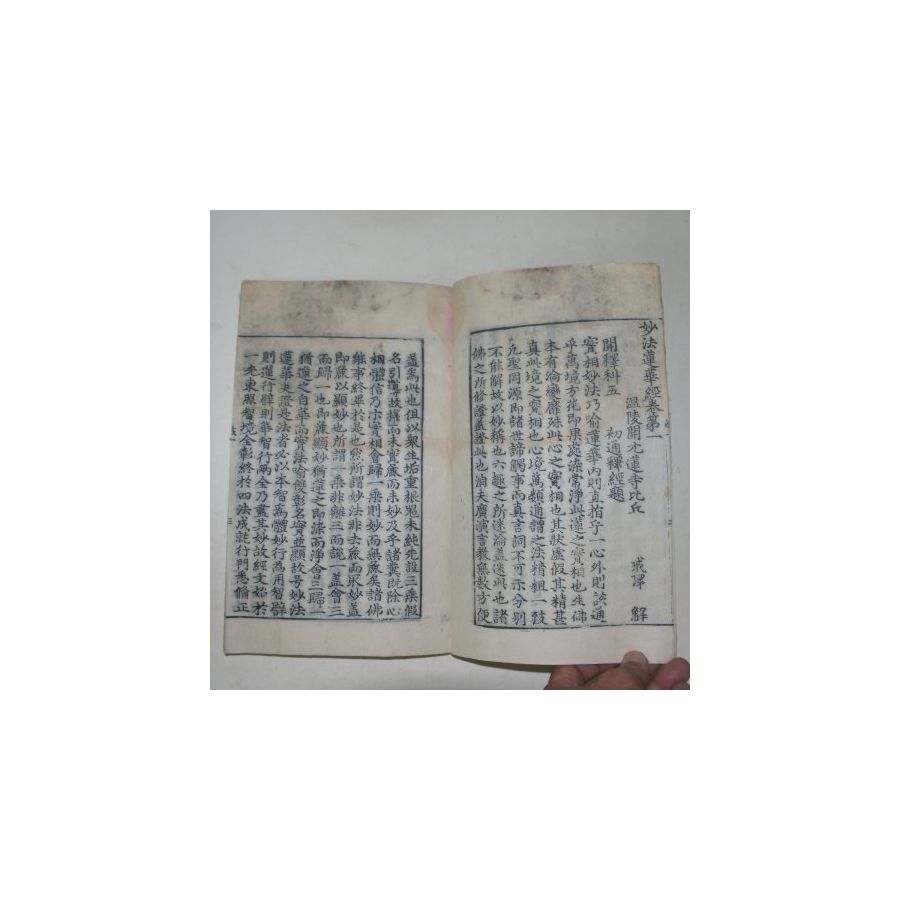 妙法蓮華經卷第一
溫陵開元蓮寺比丘 戒環 解
開釋科五 初通釋經題
實相妙法巧喻蓮華內則直指乎一心外則該通
乎萬境方花即果處染常淨此蓮之實相也生佛
本有淪變靡殊此心之實相也其狀虛假其精甚
眞此境之實相也心境萬類通謂之法精粗一致
凡聖同源即諸世諦觸事而眞言詞不可示分別
不能解故以妙稱也六趣之所迷淪盖迷此也諸
佛之所修證盖證此也洎夫廣演言敎無數方便
盖爲此也但以衆生垢重根器未純先設三乘假
名引導故權而未實麁而未妙及乎諸糞旣除心
相體信乃示實相會歸一乘則妙而無麁矣諸佛
能事終畢於是也然所謂妙法非去麁而取妙盖
即麁以顯妙也所謂一乘非離三而說一盖會三
而歸一也即麁顯妙猶蓮之即染而淨會三歸一
猶蓮之自華而實法喻雙彰名實並顯故号妙法
蓮華夫證是法者必以本智爲體妙行爲用智譬
則蓮行譬則華智行兩全乃盡其妙故經文始於
一光東照智境全彰終於四法成就行門悉備正